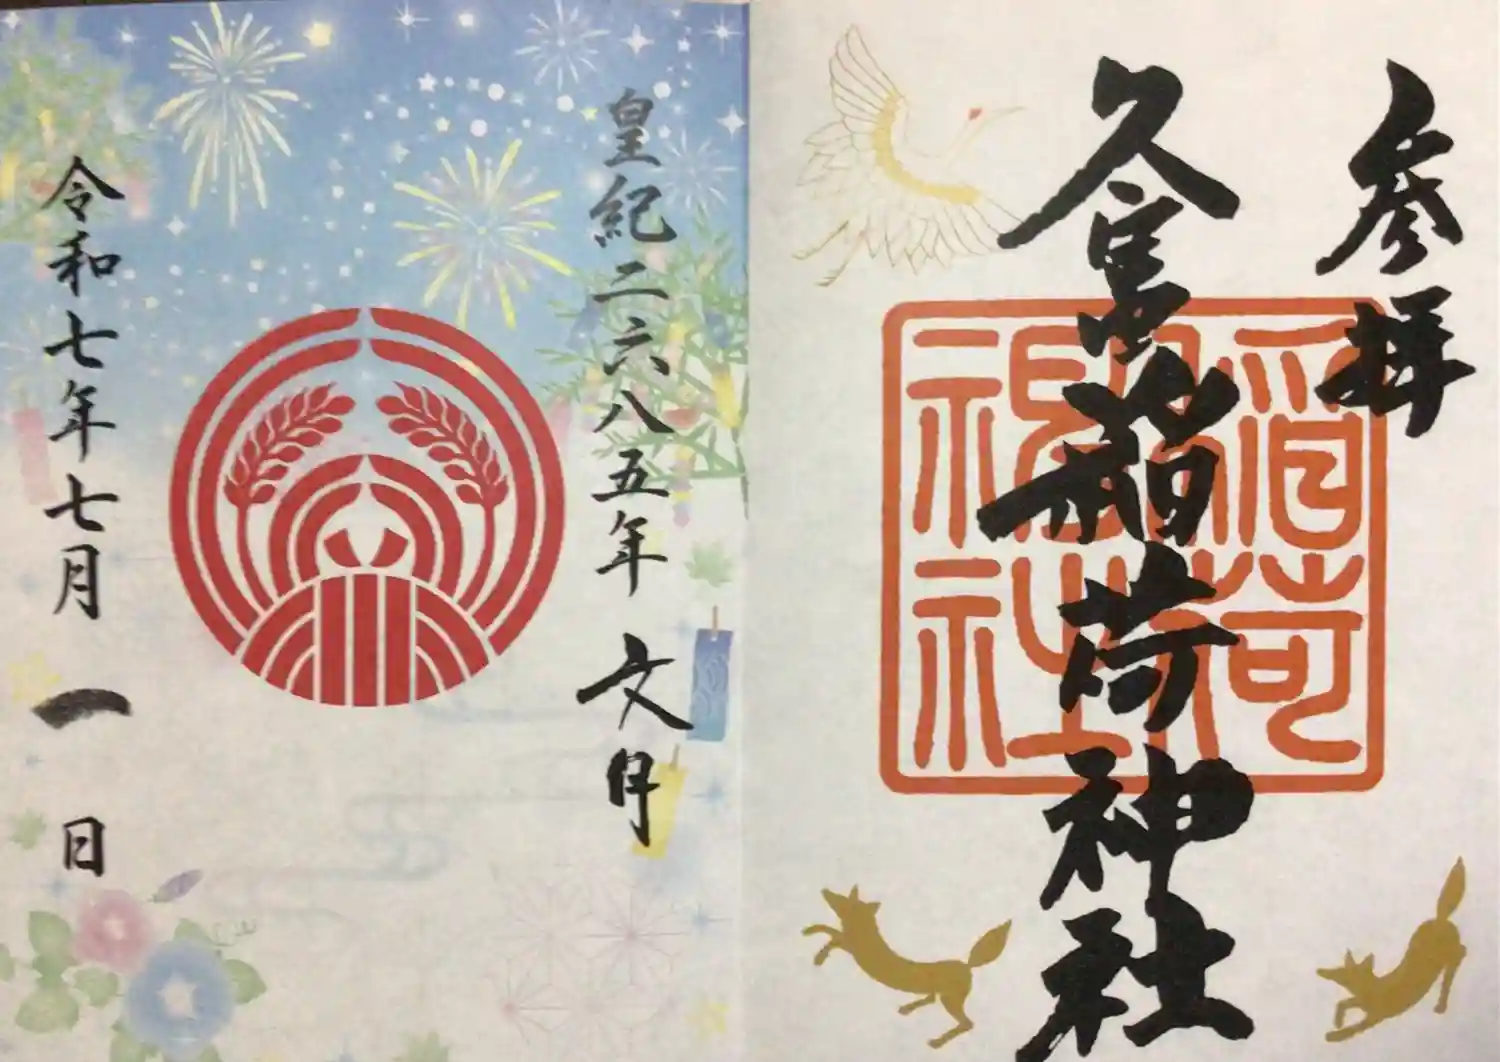 参拝
久富稲荷神社
稲荷神社
皇紀二六八五年 文月
令和七年七月一日